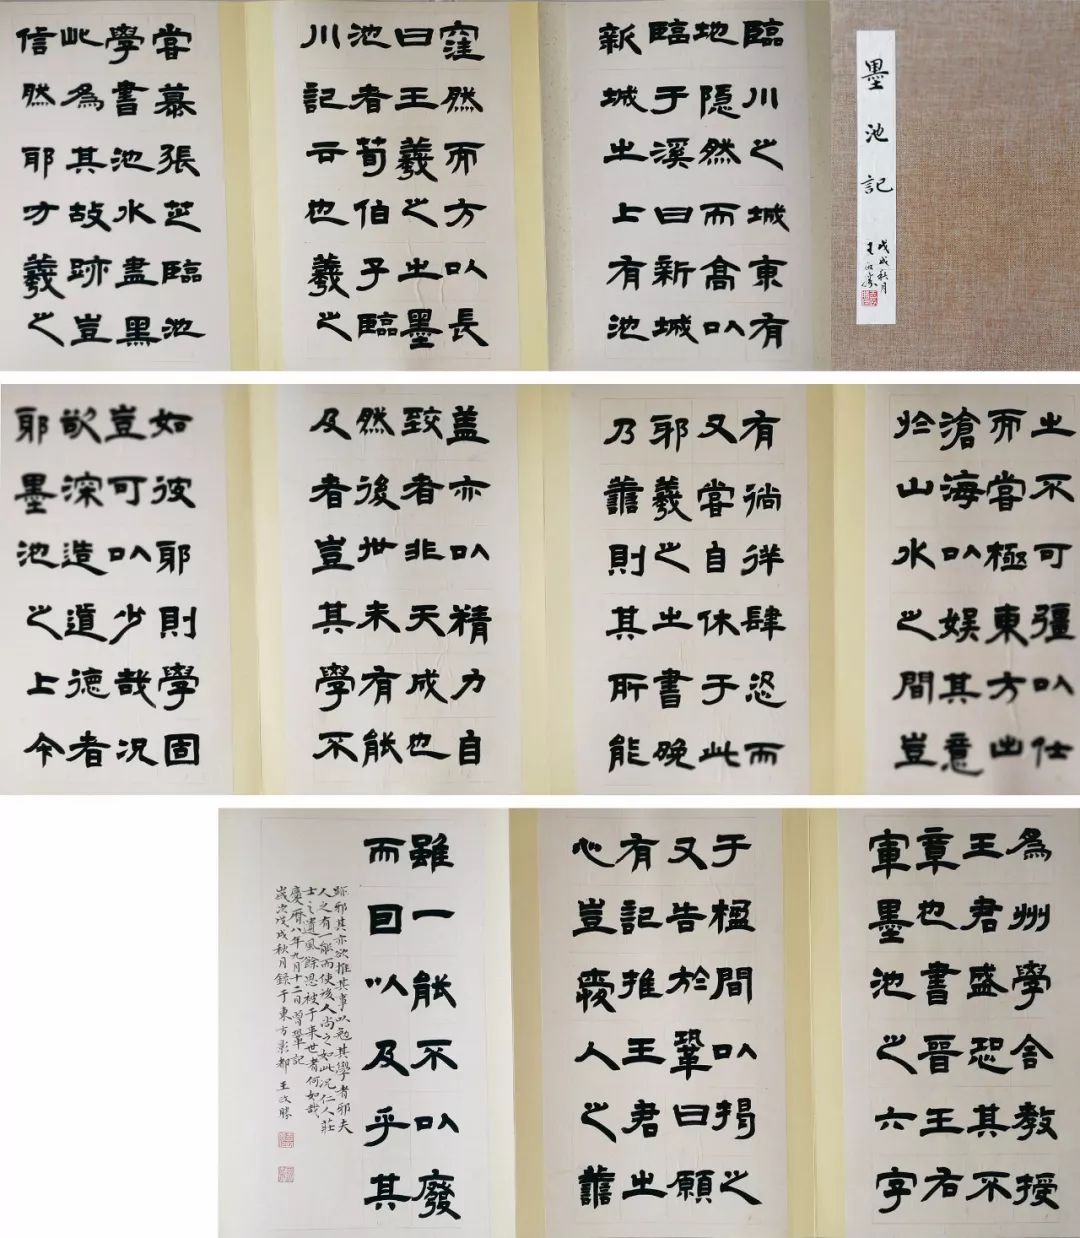 墨池記
戊戌秋月
王改勝
臨川之城東有
地隐然而高以
臨于溪曰新城
新城之上有池
窪然而方以長
曰王羲之之墨
池者荀伯子臨
川記云也羲之
嘗慕張芝臨池
學書池水盡黑
此為其故跡豈
信然耶方羲之
之不可彊以仕
而嘗極東方出
滄海以娱其意
於山水之間豈
有徜徉肆恣而
又嘗自休于此
邪羲之之書晚
乃譱則其所能
蓋亦以精力自
致者非天成也
然後世未有能
及者豈其學不
如彼耶則學固
豈可以少哉况
欲深造道德者
耶墨池之上今
為州學舍教授
王君盛恐其不
章也書晋王右
軍墨池之六字
于楹間以揭之
又告於鞏曰願
有記推王君之
心豈愛人之譱
雖一能不以廢
而因以及乎其
跡邪其亦欲推其事以勉其學者邪夫
人之有一能而使後人尚之如此况仁人莊
士之遺風餘思被于来世者何如哉
慶曆八年九月十二日曾鞏記
歲次戊戌秋月録于東方影都 王改勝